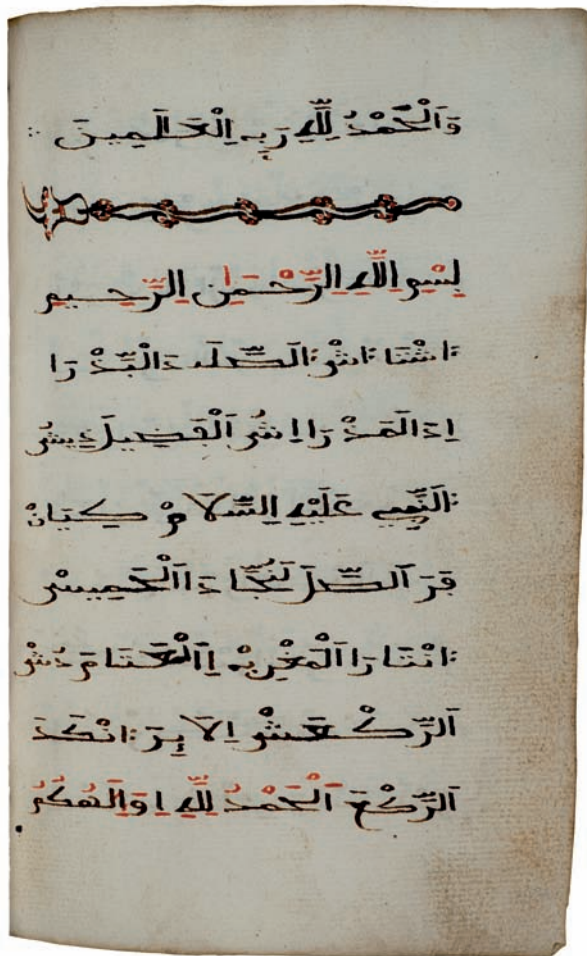 وَالْحَمْدُ لِلَّهِ رَبِّ اِلْعَالَمِينَ
بِسْمِ اِللَّهِ اِلرَّحْمَنِ اِلرَّحِيمِ
اَشْتَا اَشْ اَلصَّلَ دَالْبَّذْ رَا
اِدَالْمَذْ رَا اِشُ اَلْفَضِيلَ دِيشُ
اَلنَّبِي عَلَيْهِ اِلسَّلَامْ كِيَانْ
فَرَ اَلصَّلَ لَنُجَّا دَاالْخَمِيسْ
اَنْتَا رَا اَلْمَغْرِبْ اِاَلْعَتَامَ دُشْ
اَلرَّكْعَشْ اِلَا بِرَ اَنْكَدَ
اَلرَّكْعَ اَلْحَمْدُ لِلَّهِ اِ وَاِلَهُكُمُ